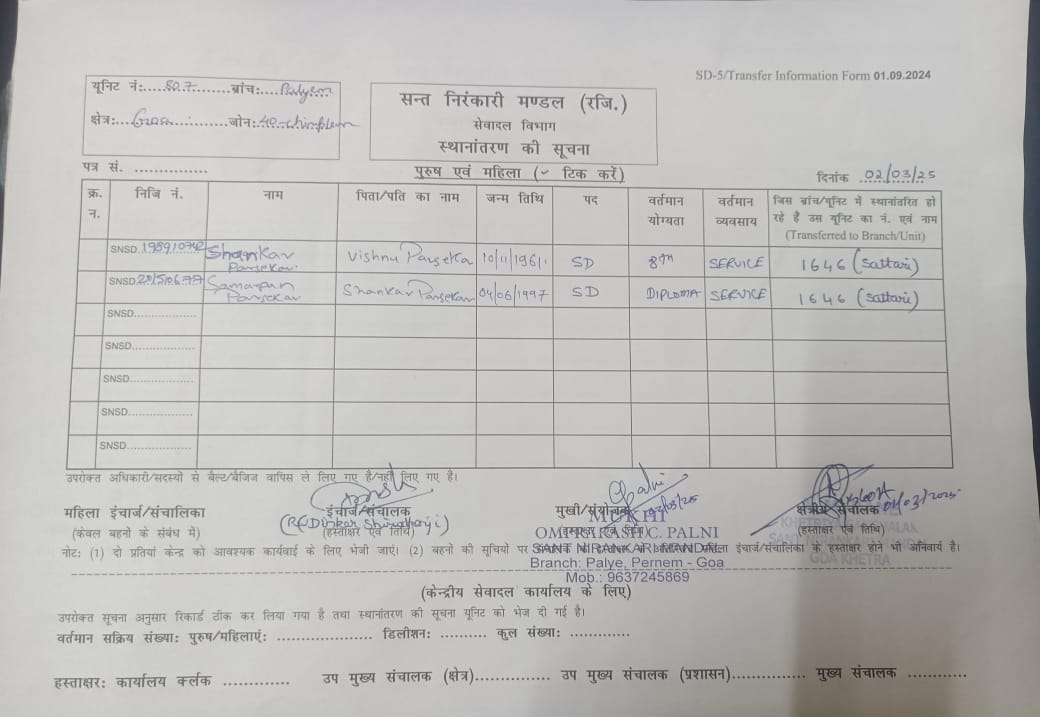 SD-5/Transfer Information Form 01.09.2024
यूनिट नं:....807.........ब्रांच:....Palyem....
क्षेत्र:...Goa...........जोन: 40-
सन्त निरंकारी मण्डल (रजि.)
सेवादल विभाग
स्थानांतरण की सूचना
पत्र सं. ...............
पुरुष एवं महिला (✓ टिक करें)
दिनांक ..02/03/25
क्र. न. निजि नं. नाम पिता/पति का नाम जन्म तिथि पद वर्तमान योग्यता वर्तमान व्यवसाय जिस ब्रांच/यूनिट में स्थानांतरित हो रहे हैं उस यूनिट का नं. एवं नाम (Transferred to Branch/Unit)
SNSD. Shankar Parsekar Vishnu Parsekar 10/11/1961 SD 8th SERVICE 1646 (Sattari)
SNSD Samarpan Parsekar Shankar Parsekar 04/06/1997 SD DIPLOMA SERVICE 1646 (Sattari)
SNSD..................
SNSD..................
SNSD..................
SNSD..................
SNSD..................
उपरोक्त अधिकारी/सदस्यों से बैल्ट/बैजिज वापिस ले लिए गए है/नहीं लिए गए है।
महिला इंचार्ज/संचालिका इंचार्ज/संचालक मुखी/संयोजक क्षेत्रीय संचालक
(केवल बहनों के संबंध में) (हस्ताक्षर एवं तिथि) (हस्ताक्षर एवं तिथि) (हस्ताक्षर एवं तिथि)
MUKHI
OMPRAKASH C. PALNI
SANT NIRANKARI MANDAL
Branch: Palye, Pernem - Goa
Mob.: 9637245869
GOA KHETRA
नोट: (1) दो प्रतियां केन्द्र को आवश्यक कार्यवाई के लिए भेजी जाएं। (2) बहनों की सूचियों पर इंचार्ज/संचालिका के हस्ताक्षर होने भी अनिवार्य है।
(केन्द्रीय सेवादल कार्यालय के लिए)
उपरोक्त सूचना अनुसार रिकार्ड ठीक कर लिया गया है तथा स्थानांतरण की सूचना यूनिट को भेज दी गई है।
वर्तमान सक्रिय संख्या: पुरुष/महिलाएं: ................... डिलीशन: .......... कुल संख्या: ............
हस्ताक्षर: कार्यालय क्लर्क ............. उप मुख्य संचालक (क्षेत्र)............... उप मुख्य संचालक (प्रशासन)............... मुख्य संचालक ............